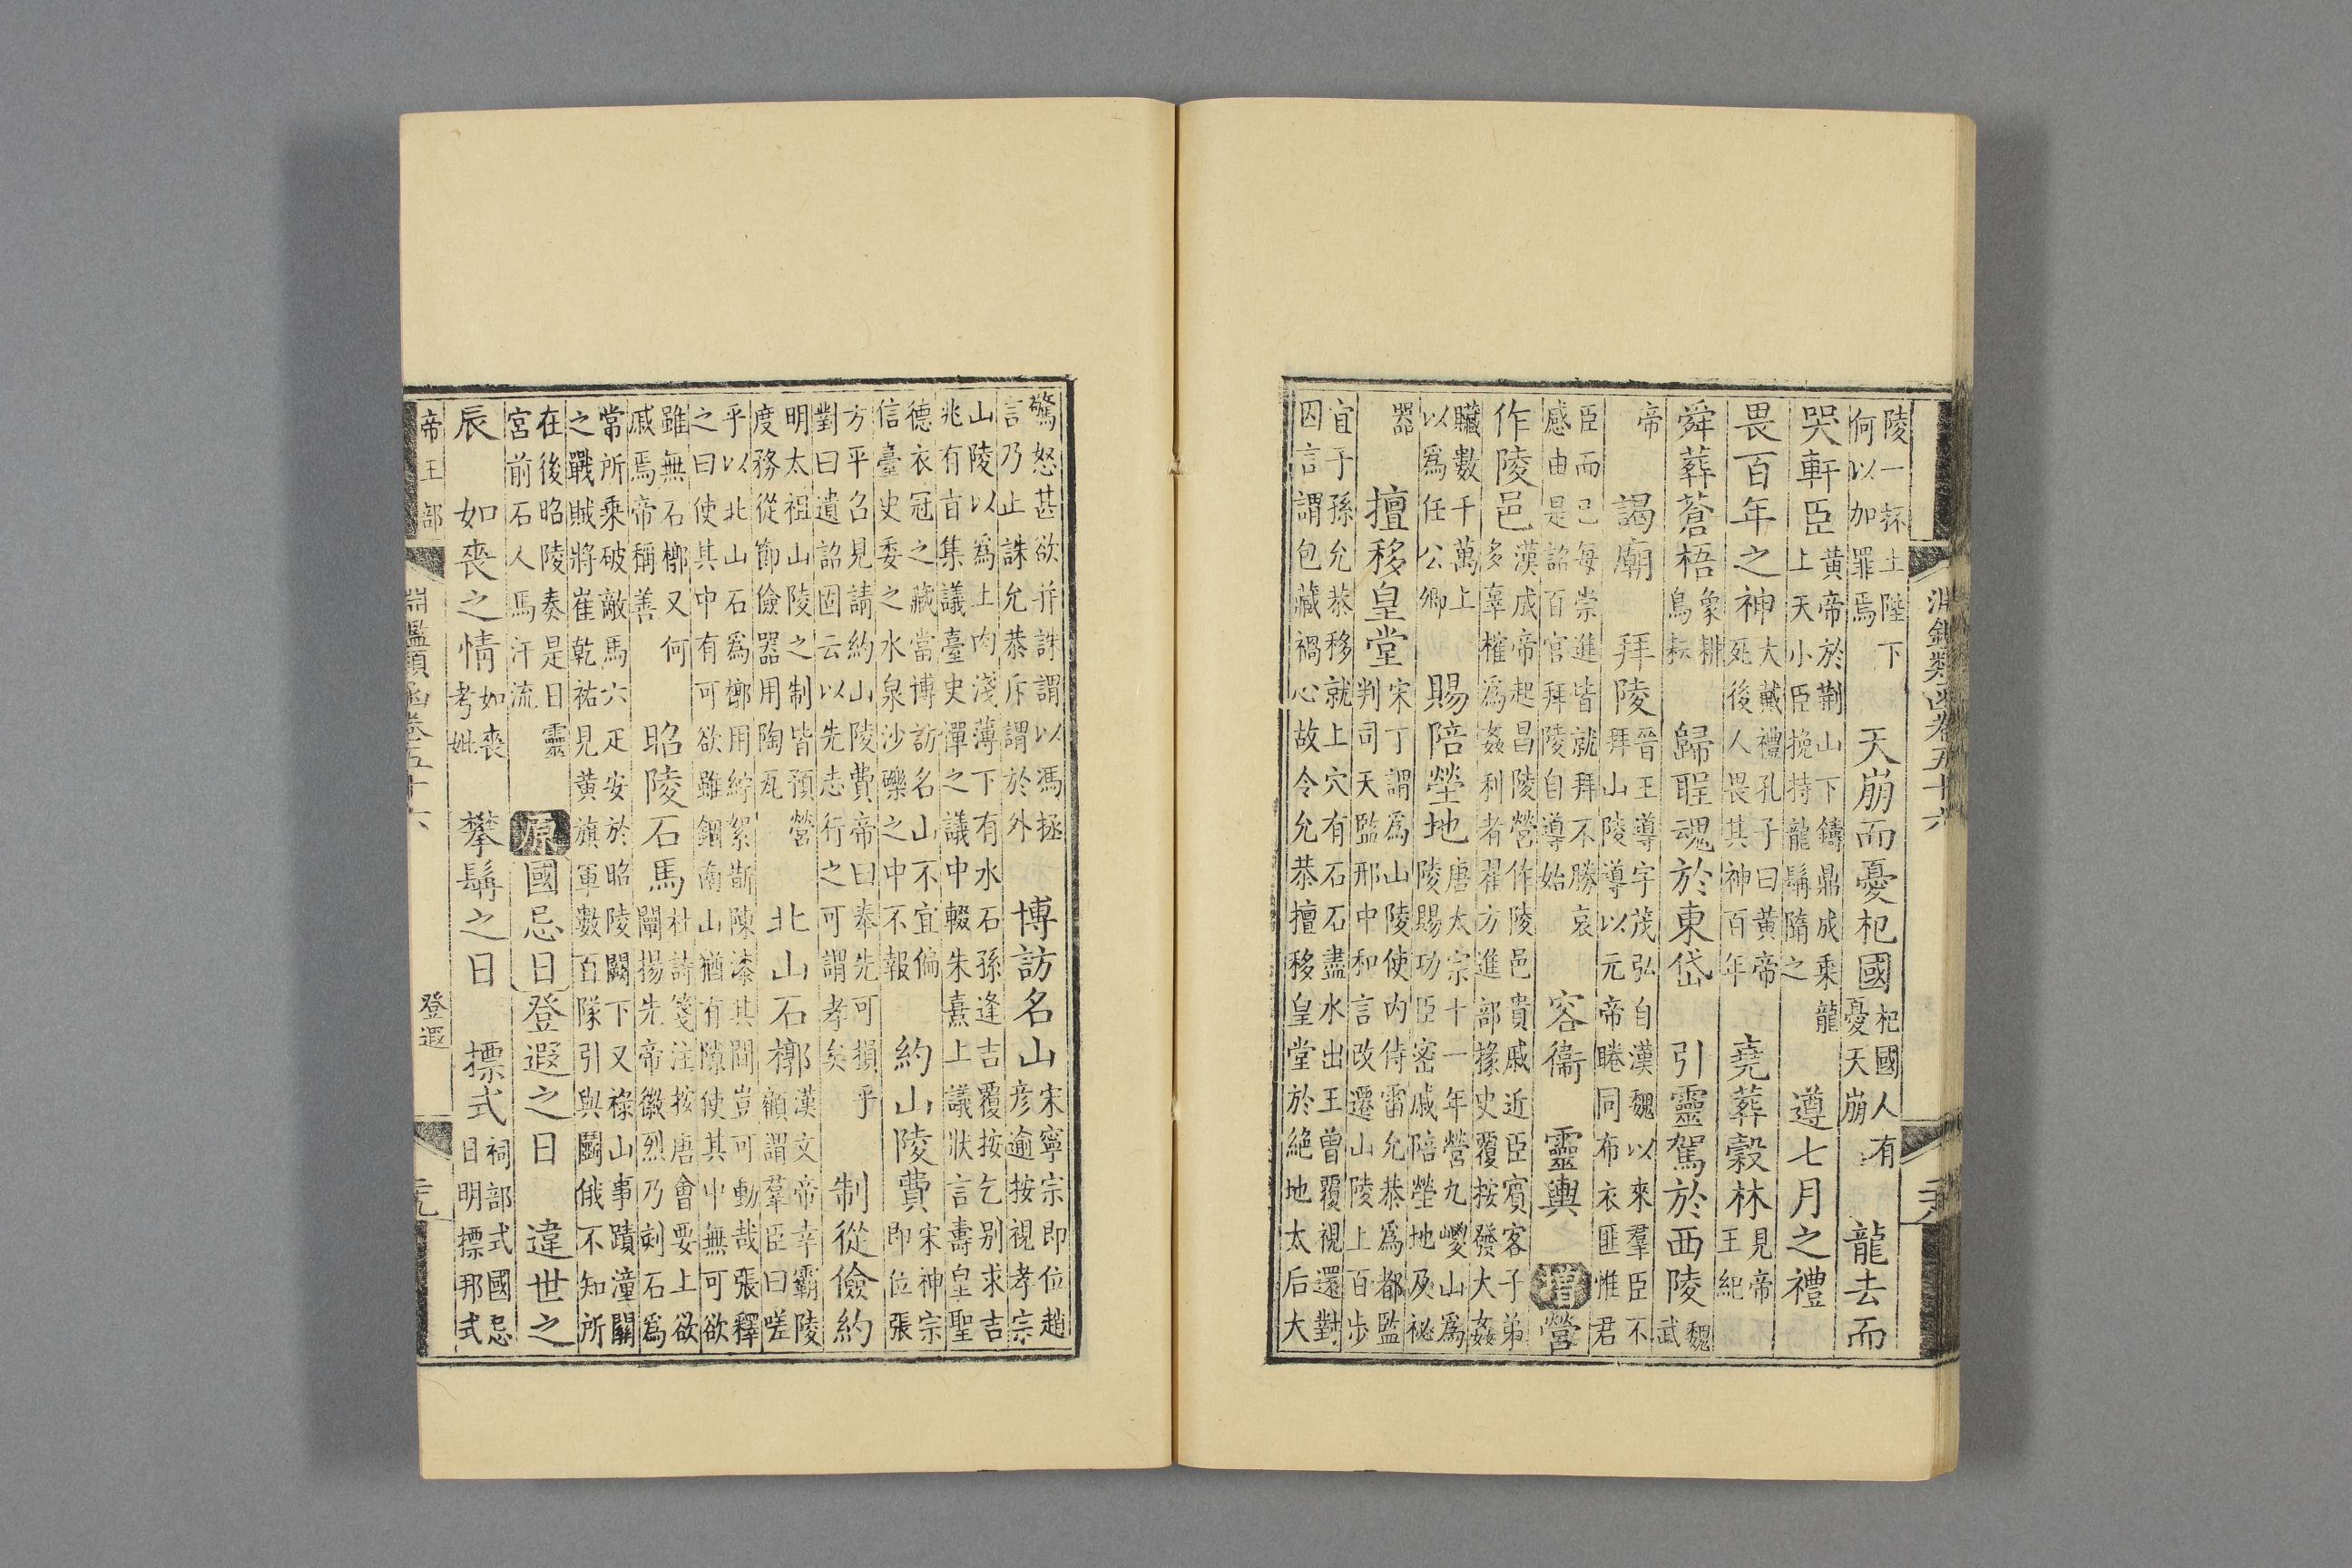 淵鑑類函卷五十六
陵一抔土陛下
何以加罪焉
天崩而憂杞國
杞國人有
憂天崩
龍去而
哭軒臣
黃帝於荆山下鑄鼎成乘龍
上天小臣挽持龍髯隋之
遵七月之禮
畏百年之神
大戴禮孔子曰黃帝
死後人畏其神百年
堯葬穀林
見帝
王紀
舜葬蒼梧
象耕
鳥耘
歸聖魂於東岱
引靈駕於西陵
魏
武
帝
謁廟
拜陵
晉王導字茂弘自漢魏以來羣臣不
拜山陵導以元帝睠同布衣匪惟君
臣而已每崇進皆就拜不勝哀
感由是詔百官拜陵自導始
容衞
靈輿
增
營
作陵邑
漢成帝起昌陵營作陵邑貴戚近臣賓客子弟
多辜榷爲姦利者翟方進部掾史覆按發大姦
贓數千萬上
以爲任公卿
賜陪塋地
唐太宗十一年營九嵕山爲
陵賜功臣密戚陪塋地及祕
器
擅移皇堂
宋丁謂爲山陵使内侍雷允恭爲都監
判司天監邢中和言改遷山陵上百步
宜子孫允恭移就上穴有石石盡水出王曾覆視還對
因言謂包藏禍心故令允恭擅移皇堂於絶地太后大
驚怒甚欲并誅謂以馮拯
言乃止誅允恭斥謂於外
博訪名山
宋寧宗即位趙
彦逾按視孝宗
山陵以爲上肉淺薄下有水石孫逢吉覆按乞别求吉
兆有㫖集議臺史憚之議中輟朱熹上議狀言壽皇聖
德衣冠之藏當博訪名山不宜偏
信臺史委之水泉沙礫之中不報
約山陵費
宋神宗
即位張
方平召見請約山陵費帝曰奉先可損乎
對曰遺詔固云以先志行之可謂孝矣
制從儉約
明太祖山陵之制皆預營
度務從節儉器用陶瓦
北山石槨
漢文帝幸霸陵
顧謂羣臣曰嗟
乎以北山石爲槨用紵絮斮陳漆其間豈可動哉張釋
之曰使其中有可欲雖錮南山猶有隙使其中無可欲
雖無石槨又何
戚焉帝稱善
昭陵石馬
杜詩箋注按唐會要上欲
闡揚先帝徽烈乃刻石爲
常所乘破敵馬六疋安於昭陵闕下又祿山事蹟潼關
之戰賊將崔乾祐見黃旗軍數百隊引與鬭俄不知所
在後昭陵奏是日靈
宮前石人馬汗流
原
國忌日
登遐之日
違世之
辰
如喪之情
如喪
考妣
攀髯之日
摽式
祠部式國忌
日明摽那式
帝王部
淵鑑類函卷五十六
登遐